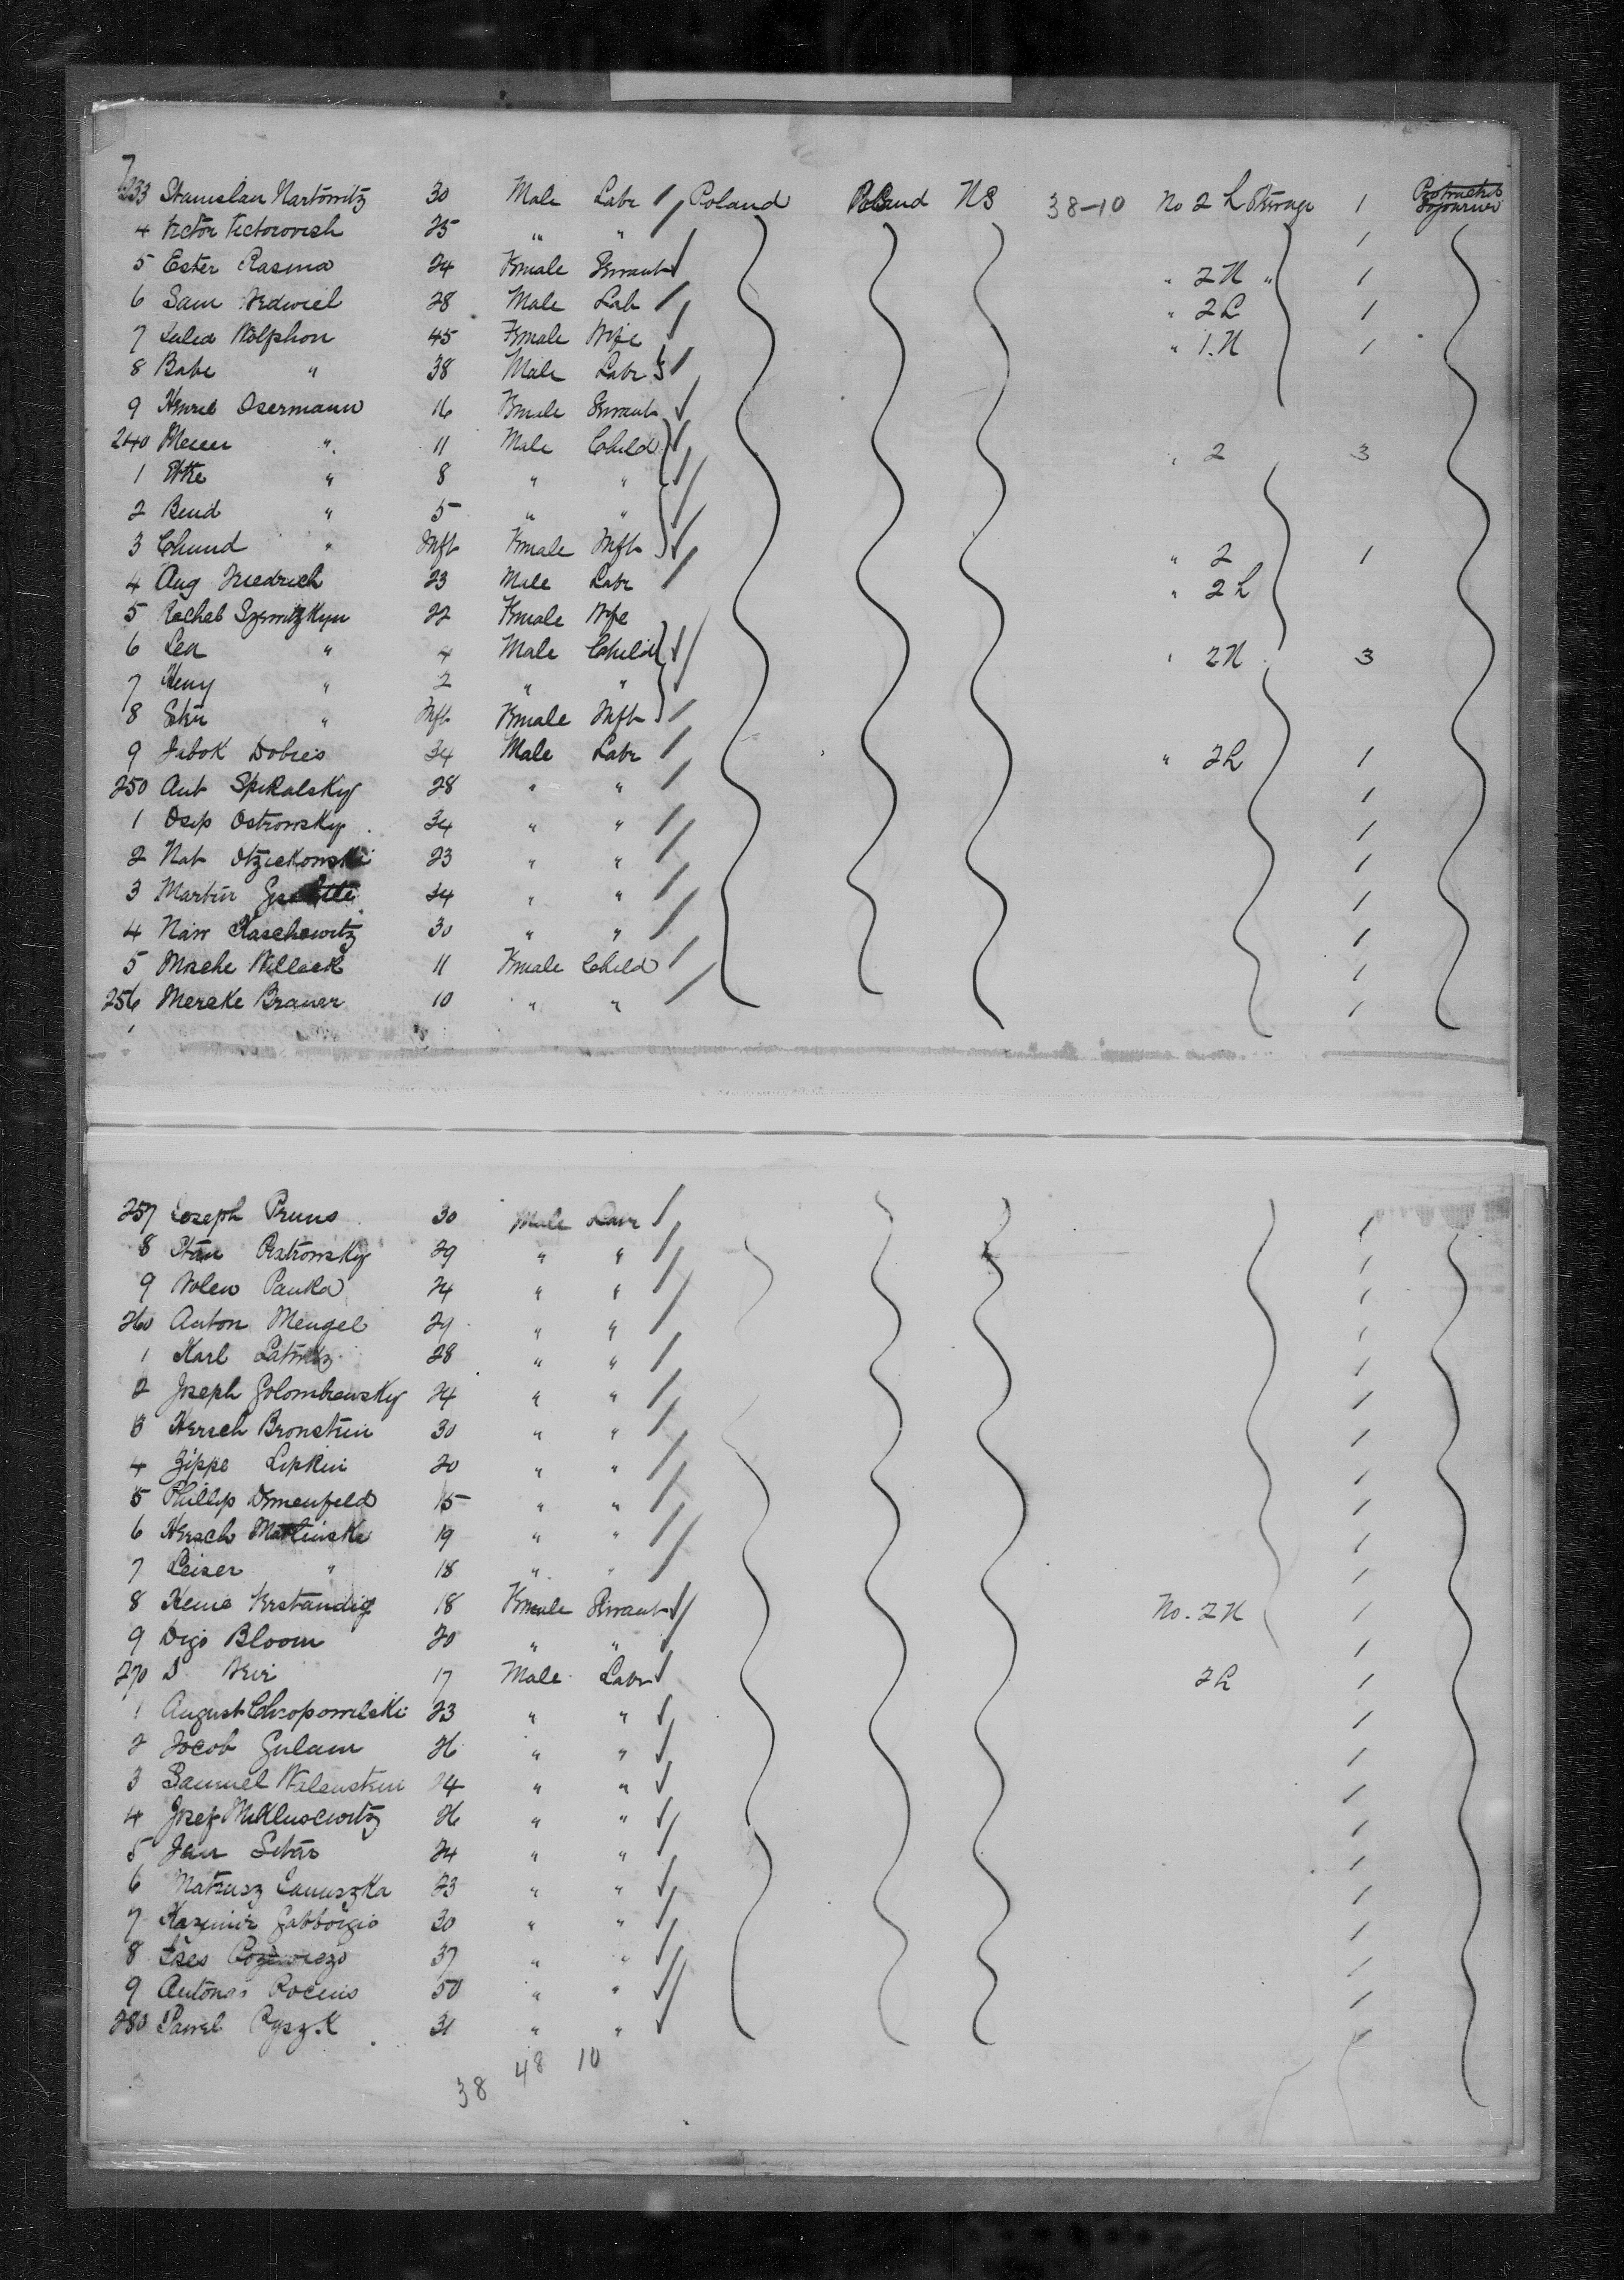 233 Stanislau Nartowitz 30 Male Labr Poland Poland NS 38-10 No 2 L Steerage 1 Protracted Sojourner
4 Victor Victorovich 25 " " 1
5 Ester Rasma 24 Female Servant " 2 N " 1
6 Sam Nedwiel 28 Male Lab " 2 L 1
7 Wolfshon 45 Female Wife " 1. N 1
8 Babe " 38 Male Labr
9 Osermann 16 Female Servant
240 Meier " 11 Male Child " 2 3
1 Etke " 8 " "
2 Beud " 5 " "
3 Chund " Inft Female Inft " 2 1
4 Aug Friedrich 23 Male Labr " 2 L
5 Rachel 22 Female Wife
6 Lea " 4 Male Child " 2 N 3
7 Heny " 2 " "
8 " Inft Female Inft
9 Jabok Dobies 34 Male Labr " 2 L 1
250 Ant Spikalsky 28 " " 1
1 Osip Ostrowsky 34 " " 1
2 Nat 23 " " 1
3 Martin 34 " " 1
4 Naw Kaschewitz 30 " " 1
5 Mosche Willeck 11 Female Child 1
256 Mereke Brauer 10 " " 1
257 Joseph Pruns 30 Male Labr 1
8 Stan Piatrowsky 29 " " 1
9 Wolew Pauka 24 " " 1
260 Anton Mengel 29 " " 1
1 Karl 28 " " 1
2 Joseph Golombewsky 24 " " 1
3 Hersch Bronstein 30 " " 1
4 Zippe Lipkin 20 " " 1
5 Phillip Ormenfeld 15 " " 1
6 Hersch Matlinska 19 " " 1
7 Leiser " 18 " " 1
8 Verstandig 18 Female Servant No. 2 N 1
9 Digo Bloom 20 " " 1
270 D 17 Male Labr 2 L 1
1 August Chropowilski 23 " " 1
2 Jocob Gulam 26 " " 1
3 Samuel Walenstein 24 " " 1
4 Josef Mikluscewitz 26 " " 1
5 Jan Sitar 24 " " 1
6 Mateusz Januszka 23 " " 1
7 Kasimir Gabboigio 30 " " 1
8 37 " " 1
9 Antonas Pocius 50 " " 1
280 Pawel Ryszk 31 " " 1
38 48 10